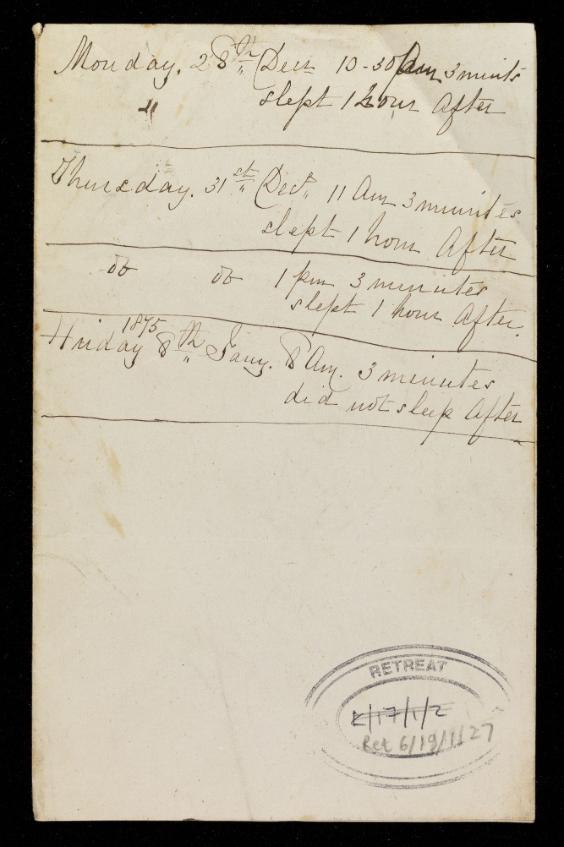 Monday. 28th Decr 10-30 Am 3 minuts
" slept 1 hour After
Thursday. 31st Decr 11 Am 3 minuites
slept 1 hour After
do do 1 pm 3 minuites
slept 1 hour After.
1875
Friday 8th Jany. 8 Am. 3 minuites
did not sleep After
RETREAT
K/17/1/2
Ret 6/19/1/27